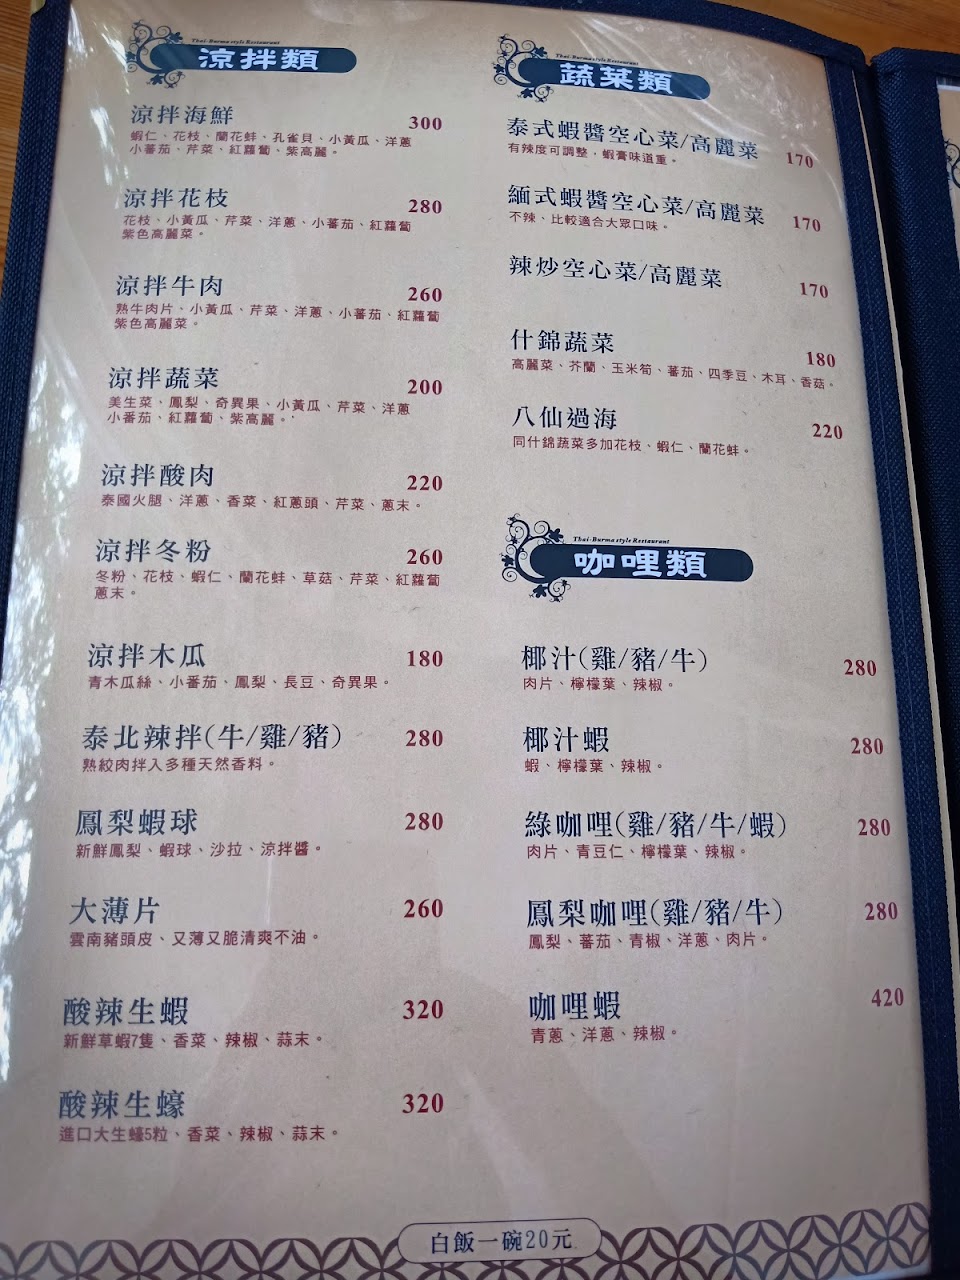 Thai-Burma style Restaurant
涼拌類
涼拌海鮮 300
蝦仁、花枝、蘭花蚌、孔雀貝、小黃瓜、洋蔥
小蕃茄、芹菜、紅蘿蔔、紫高麗。
涼拌花枝 280
花枝、小黃瓜、芹菜、洋蔥、小蕃茄、紅蘿蔔
紫色高麗菜。
涼拌牛肉 260
熟牛肉片、小黃瓜、芹菜、洋蔥、小蕃茄、紅蘿蔔
紫色高麗菜。
涼拌蔬菜 200
美生菜、鳳梨、奇異果、小黃瓜、芹菜、洋蔥
小番茄、紅蘿蔔、紫高麗。
涼拌酸肉 220
泰國火腿、洋蔥、香菜、紅蔥頭、芹菜、蔥末。
涼拌冬粉 260
冬粉、花枝、蝦仁、蘭花蚌、草菇、芹菜、紅蘿蔔
蔥末。
涼拌木瓜 180
青木瓜絲、小番茄、鳳梨、長豆、奇異果。
泰北辣拌(牛/雞/豬) 280
熟絞肉拌入多種天然香料。
鳳梨蝦球 280
新鮮鳳梨、蝦球、沙拉、涼拌醬。
大薄片 260
雲南豬頭皮、又薄又脆清爽不油。
酸辣生蝦 320
新鮮草蝦7隻、香菜、辣椒、蒜末。
酸辣生蠔 320
進口大生蠔5粒、香菜、辣椒、蒜末。
Thai-Burma style Restaurant
蔬菜類
泰式蝦醬空心菜/高麗菜 170
有辣度可調整，蝦膏味道重。
緬式蝦醬空心菜/高麗菜 170
不辣、比較適合大眾口味。
辣炒空心菜/高麗菜 170
什錦蔬菜 180
高麗菜、芥蘭、玉米筍、蕃茄、四季豆、木耳、香菇。
八仙過海 220
同什錦蔬菜多加花枝、蝦仁、蘭花蚌。
Thai-Burma style Restaurant
咖哩類
椰汁(雞/豬/牛) 280
肉片、檸檬葉、辣椒。
椰汁蝦 280
蝦、檸檬葉、辣椒。
綠咖哩(雞/豬/牛/蝦) 280
肉片、青豆仁、檸檬葉、辣椒。
鳳梨咖哩(雞/豬/牛) 280
鳳梨、蕃茄、青椒、洋蔥、肉片。
咖哩蝦 420
青蔥、洋蔥、辣椒。
白飯一碗20元